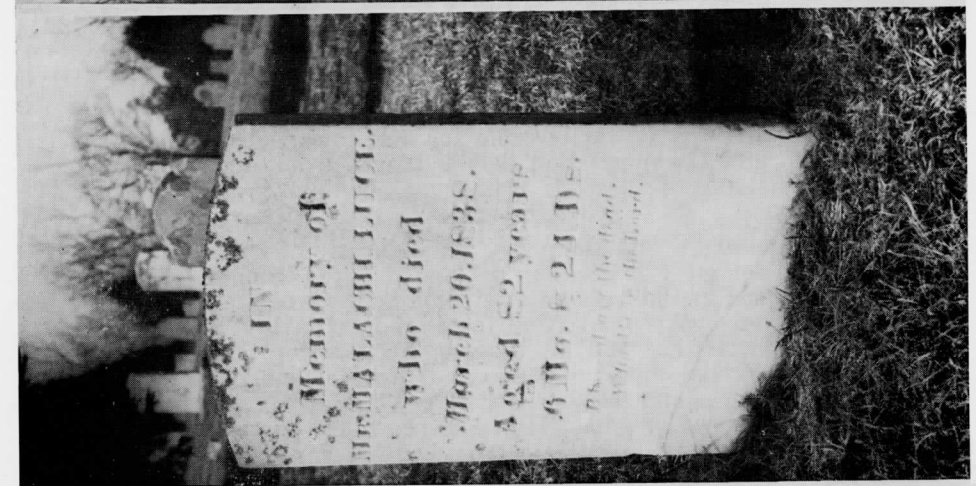 IN
Memory of
Mr MALACHI LUCE.
who died
March 20, 1838.
Aged 82 years
Mo. & 21 Ds.